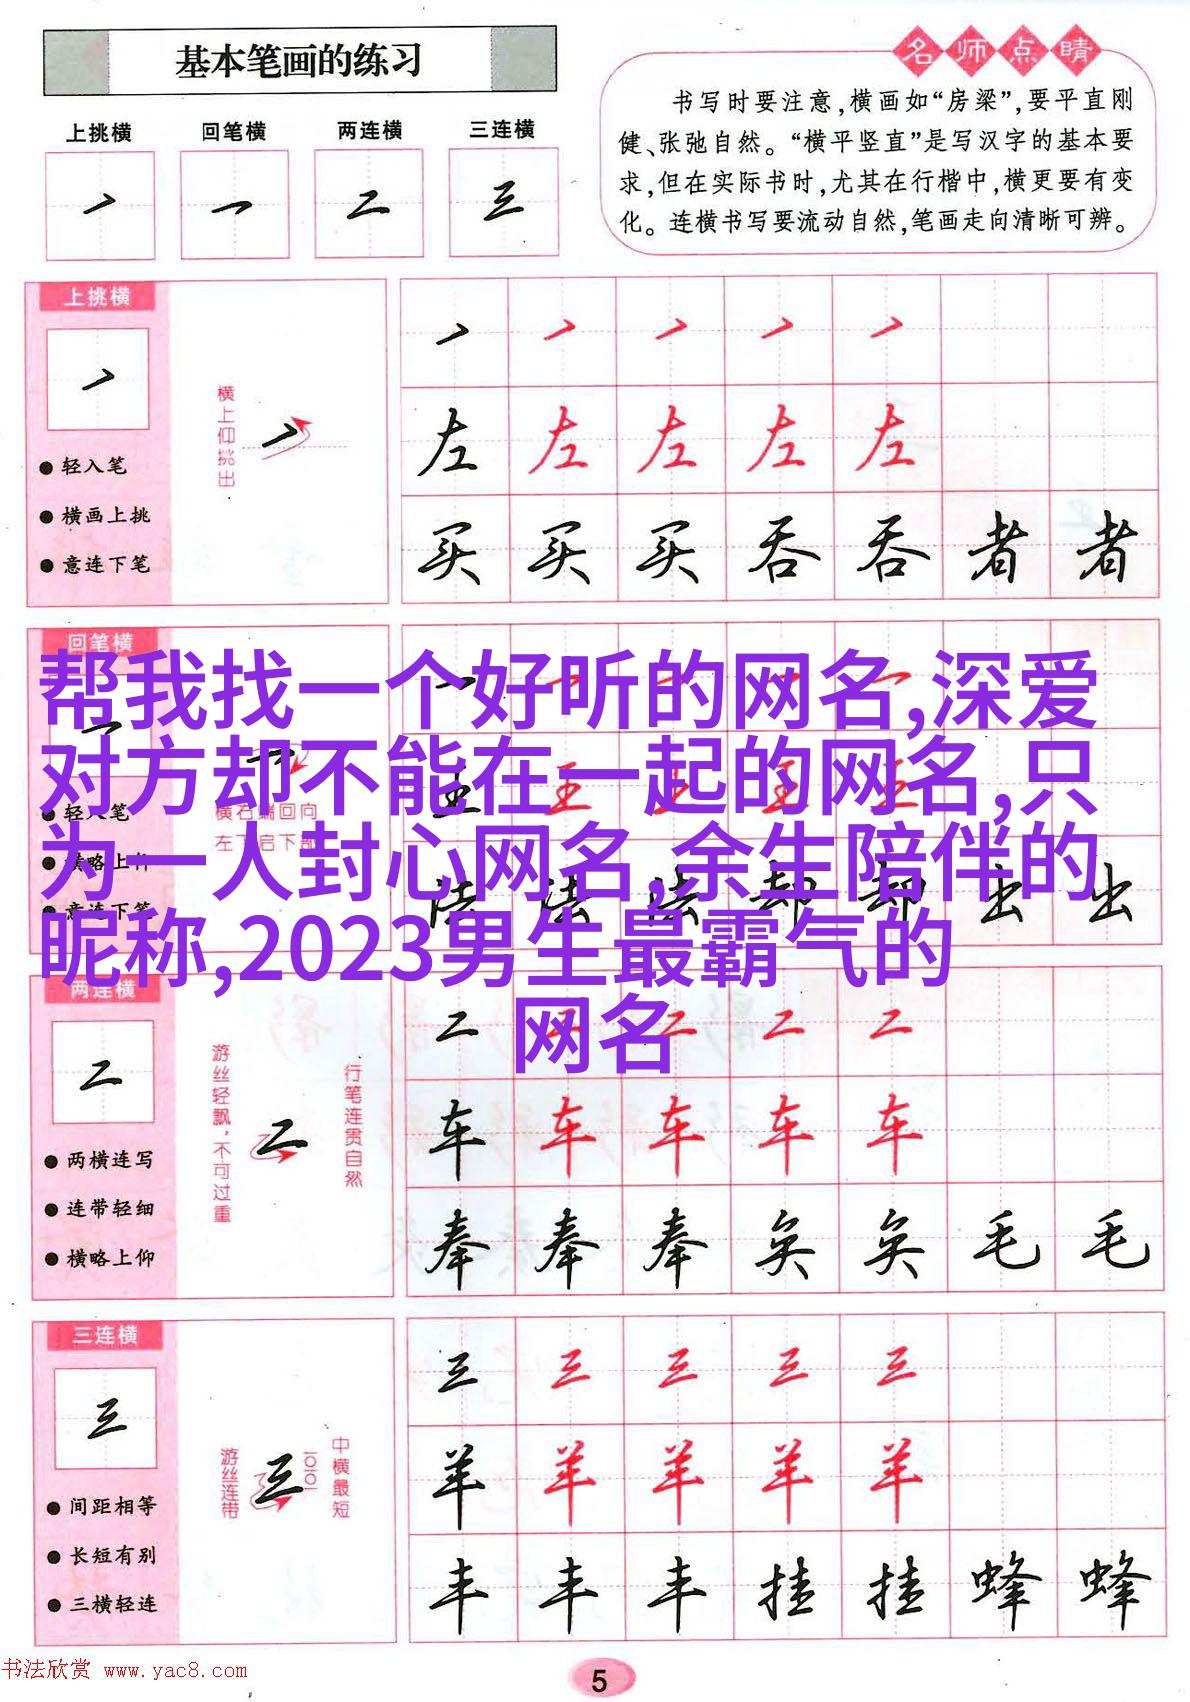 基本笔画的练习
上挑横 回笔横 两连横 三连横
丶 一 二 三
名师点睛
书写时要注意,横画如“房梁”,要平直刚
健、张弛自然。“横平竖直”是写汉字的基本要
求,但在实际书时,尤其在行楷中,横更要有变
化。连横书写要流动自然,笔画走向清晰可辨。
上挑横
轻入笔
横画上挑
意连下笔
横上仰挑出
左 左 左 左 左
买 买 买 吞 吞 者 者
回笔横
帮我找一个好听的网名,深爱
对方却不能在一起的网名,只
为一人封心网名,余生陪伴的
昵称,2023男生最霸气的
网名
轻入笔
横略上仰
意连下笔
法 法 法 却 却 出 出
两连横
二
两横连写
连带轻细
横略上仰
游丝轻飘,不可过重
二
行笔连贯自然
二 二 二 二 二
车 车 车 车 车
奉 奉 奉 奂 奂 毛 毛
三连横
三
间距相等
长短有别
三横轻连
游丝连带
三
中横最短
三 三 三 三 三
羊 羊 羊 羊 羊
丰 丰 丰 挂 挂 蜂 蜂
书法欣赏 www.yac8.com
5